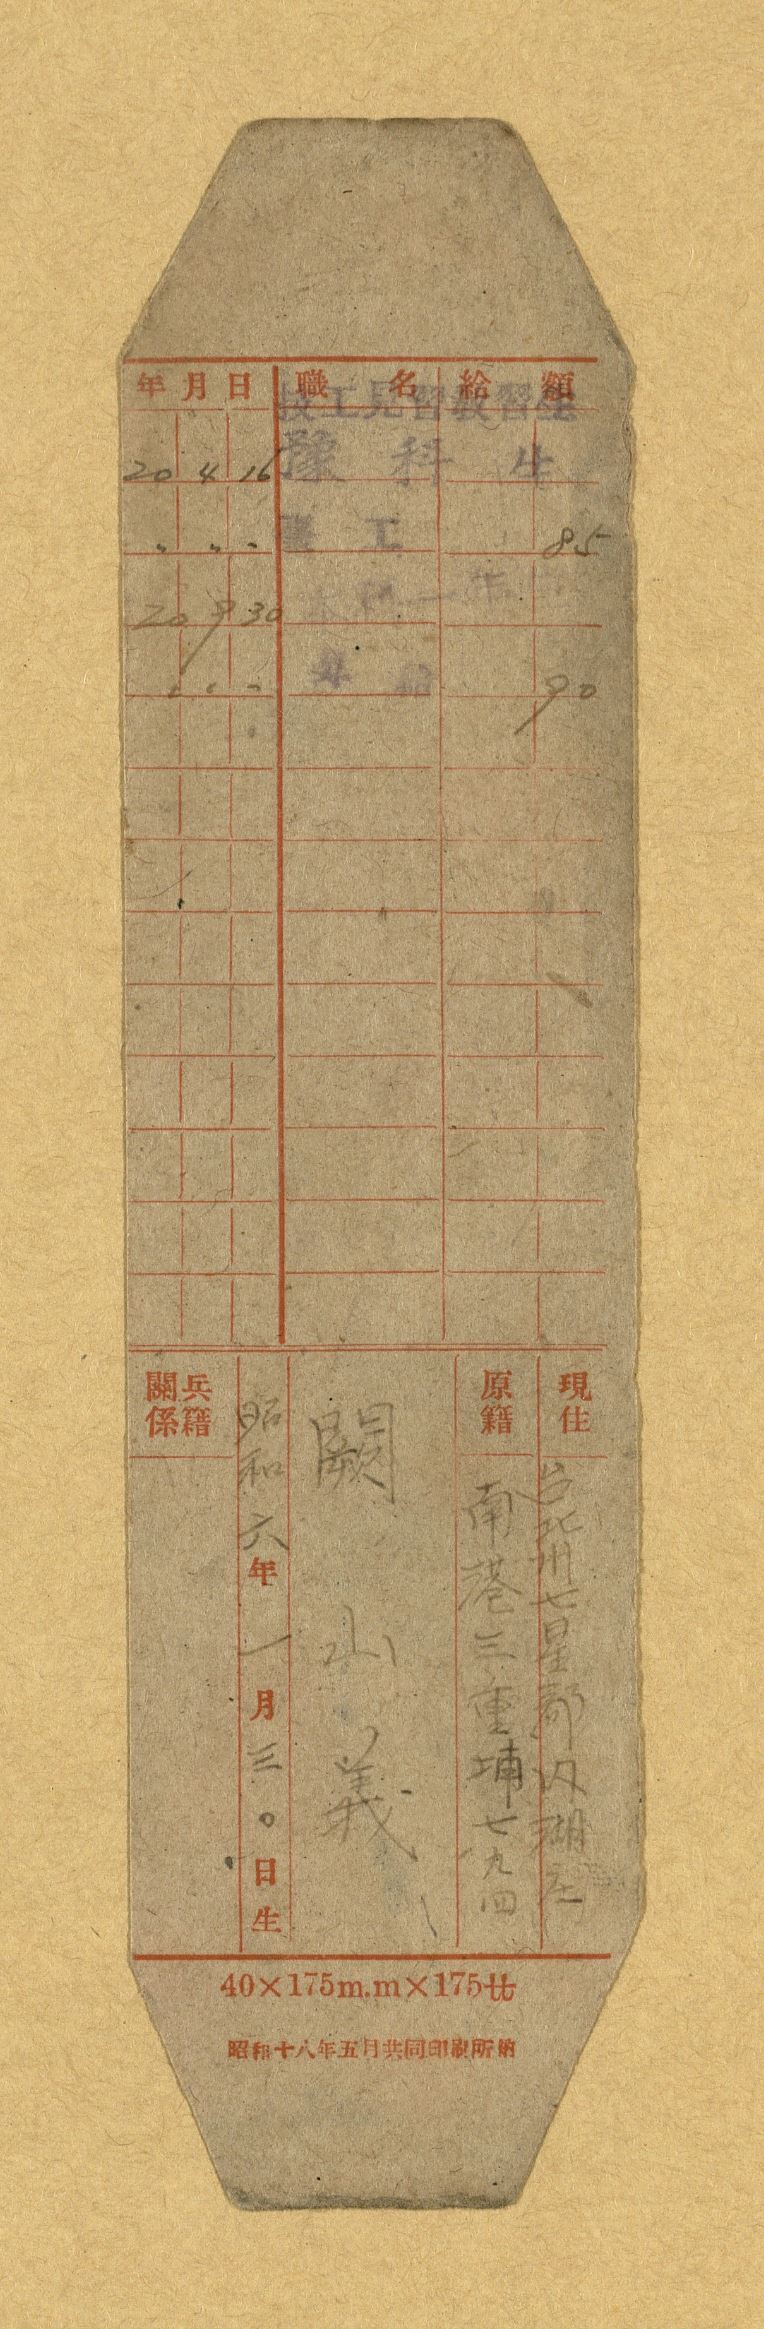 年 月 日 職 名 給 額
技工見習教習生
20 4 16 豫 科 生
〃 〃 〃 工 85
20 9 30 一
〃 〃 〃 昇 給 90
現住 台北州七星郡内湖庄
原籍 南港三重埔七九四
闕 山 義
昭和六年一月三〇日生
兵籍關係
40×175m.m×175㌔
昭和十八年五月共同印刷所納